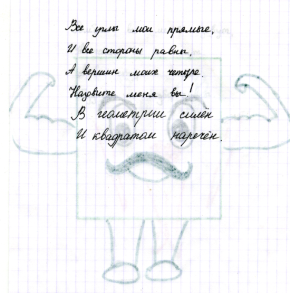 Все углы мои прямые,
И все стороны равны.
А вершин моих четыре.
Назовите меня вы!
В геометрии силён
И квадратом наречён.